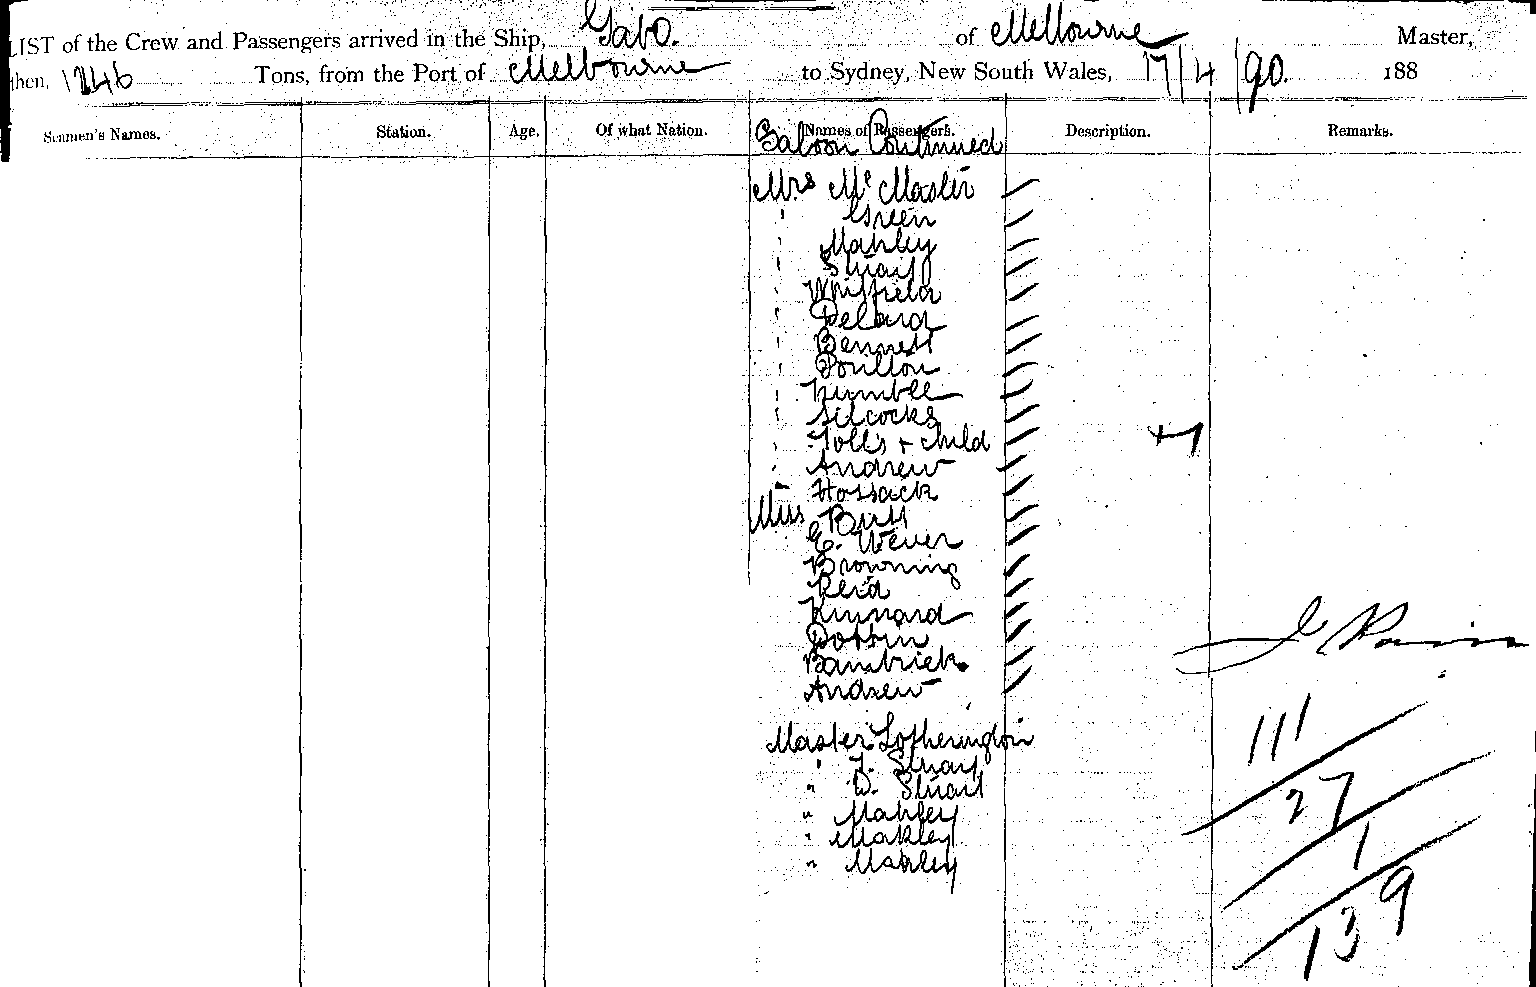 LIST of the Crew and Passengers arrived in the Ship, Gabo. of Melbourne Master,
then, 1246 Tons, from the Port of Melbourne to Sydney, New South Wales, 17/4/90. 188
Seamen's Names. Station. Age. Of what Nation. Names of Passengers. Description. Remarks.
Saloon Continued
Mrs McMaster
" Green
" Mahley
" Stuart
" Whitfield
" Delard
" Bennett
" Poulton
" Kimble
" Silcocks
" Tolls + child +1
" Andrew
" Hossack
Miss Butt
E. Wever
Browning
Reid
Kinnard
Dobbin
Bambrick
Andrew
Master Lotherington
" J. Stuart
" D. Stuart
" Mahley
" Makley
" Mahley
111
27
1
139